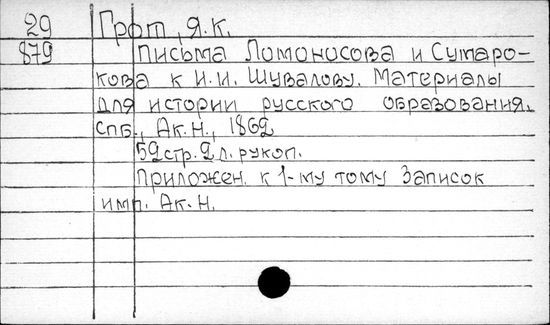 29 Грот, Я.К.
879 Письма Ломоносова и Сумаро-
кова к И.И. Шувалову. Материалы
для истории русского образования.
СПб., Ак.Н., 1862
52 стр. 2 л. рукоп.
Приложен. к 1-му тому Записок
имп. Ак.Н.